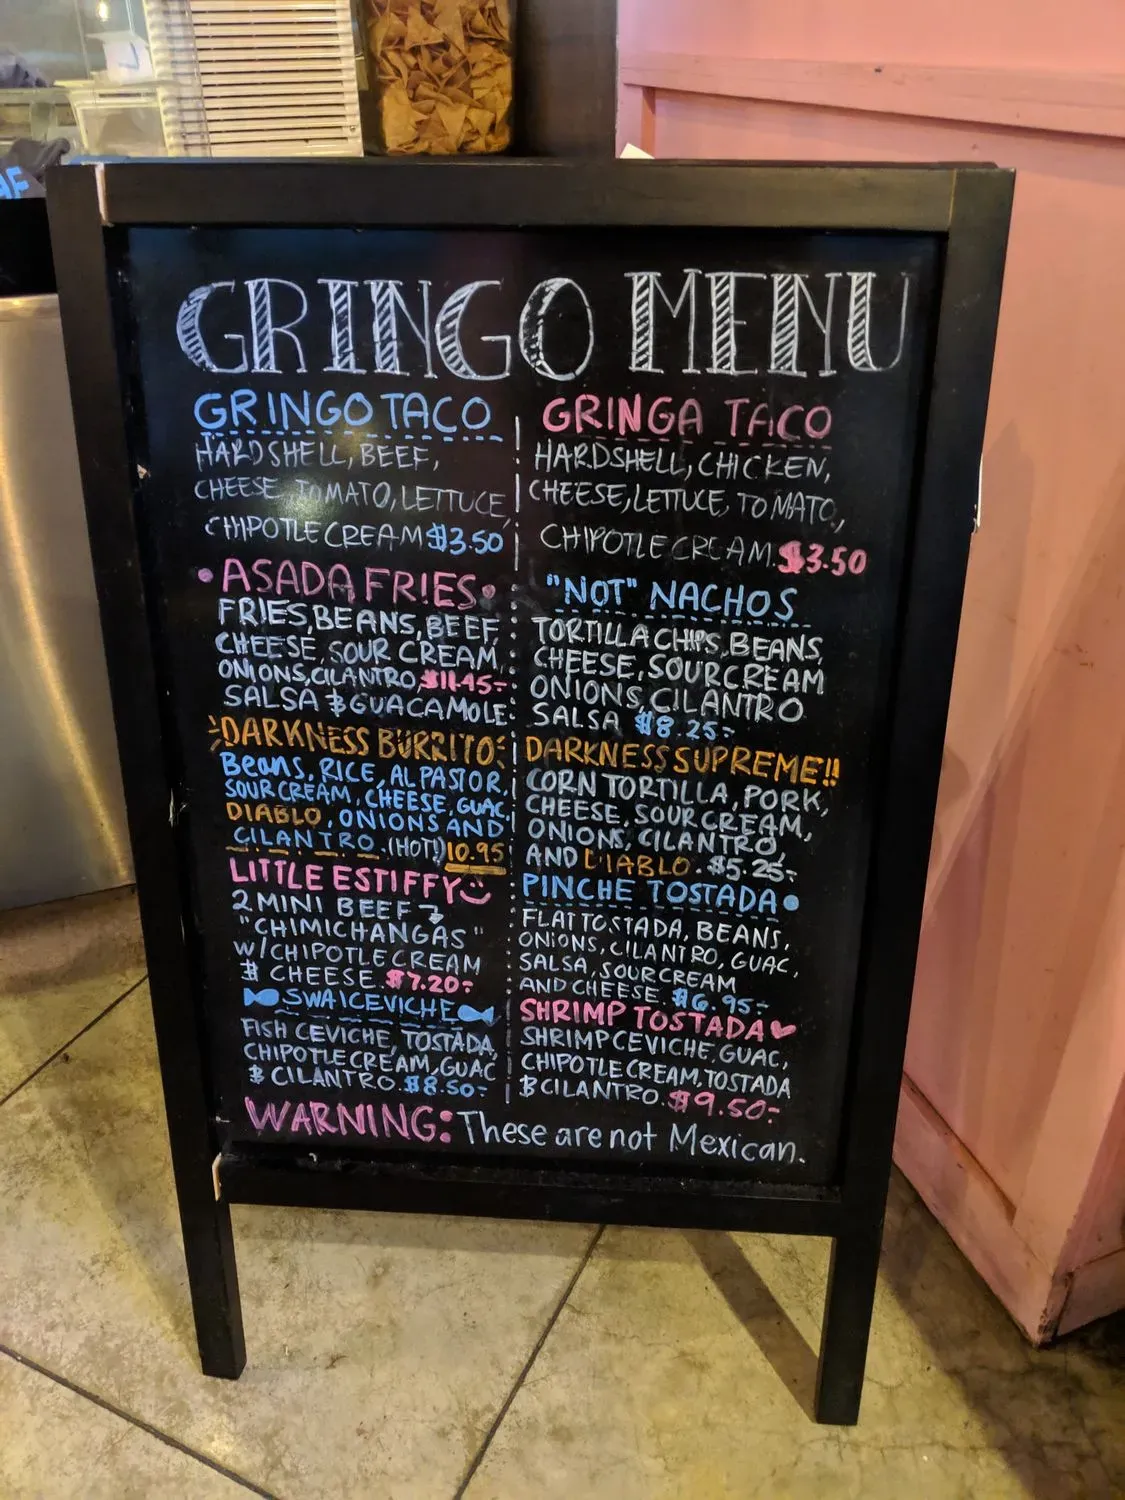 GRINGO MENU
GRINGO TACO
HARDSHELL, BEEF,
CHEESE, TOMATO, LETTUCE,
CHIPOTLE CREAM $3.50
• ASADA FRIES •
FRIES, BEANS, BEEF,
CHEESE, SOUR CREAM,
ONIONS, CILANTRO, $11.45-
SALSA & GUACAMOLE.
DARKNESS BURRITO
Beans, RICE, AL PASTOR,
SOUR CREAM, CHEESE, GUAC,
DIABLO, ONIONS AND
CILANTRO. (HOT!) 10.95
LITTLE ESTIFFY
2 MINI BEEF
"CHIMICHANGAS"
W/CHIPOTLE CREAM
& CHEESE. $7.20-
SWAICEVICHE
FISH CEVICHE, TOSTADA,
CHIPOTLE CREAM, GUAC
& CILANTRO. $8.50-
GRINGA TACO
HARDSHELL, CHICKEN,
CHEESE, LETTUCE, TOMATO,
CHIPOTLE CREAM. $3.50
"NOT" NACHOS
TORTILLA CHIPS, BEANS,
CHEESE, SOUR CREAM
ONIONS, CILANTRO
SALSA $8.25-
DARKNESS SUPREME!!
CORN TORTILLA, PORK,
CHEESE, SOUR CREAM,
ONIONS, CILANTRO,
AND DIABLO. $5.25-
PINCHE TOSTADA •
FLAT TOSTADA, BEANS,
ONIONS, CILANTRO, GUAC,
SALSA, SOUR CREAM
AND CHEESE. $6.95-
SHRIMP TOSTADA ♥
SHRIMP CEVICHE, GUAC,
CHIPOTLE CREAM, TOSTADA
& CILANTRO. $9.50-
WARNING: These are not Mexican.